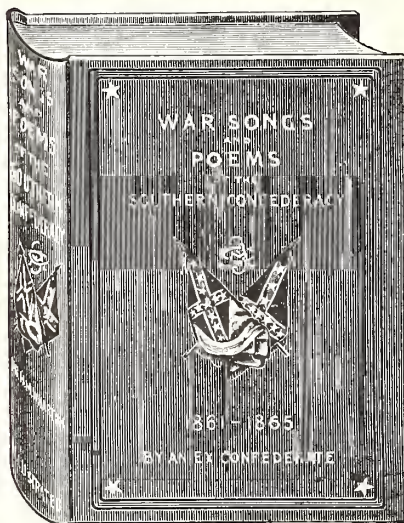 WAR SONGS
AND
POEMS
OF THE
SOUTHERN CONFEDERACY
1861-1865
BY AN EX CONFEDERATE
WAR
SONGS
AND
POEMS
OF THE
SOUTHERN
CONFEDERACY
ILLUSTRATED